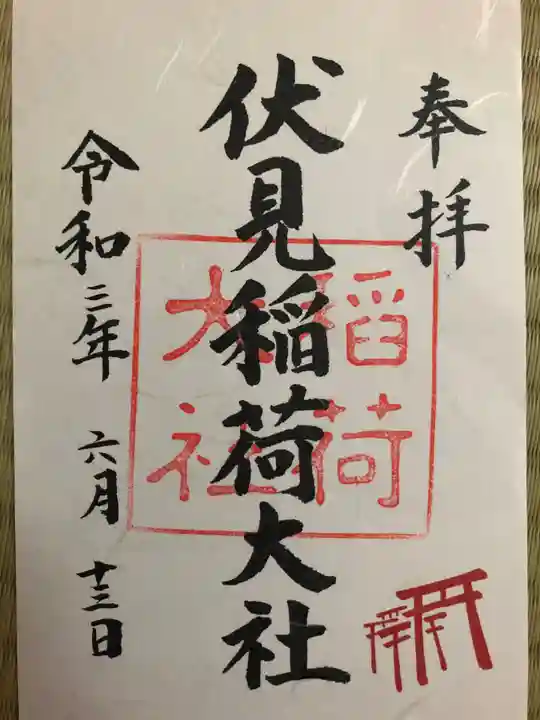 奉拝
伏見稲荷大社
稲荷
大社
令和三年 六月 十三日